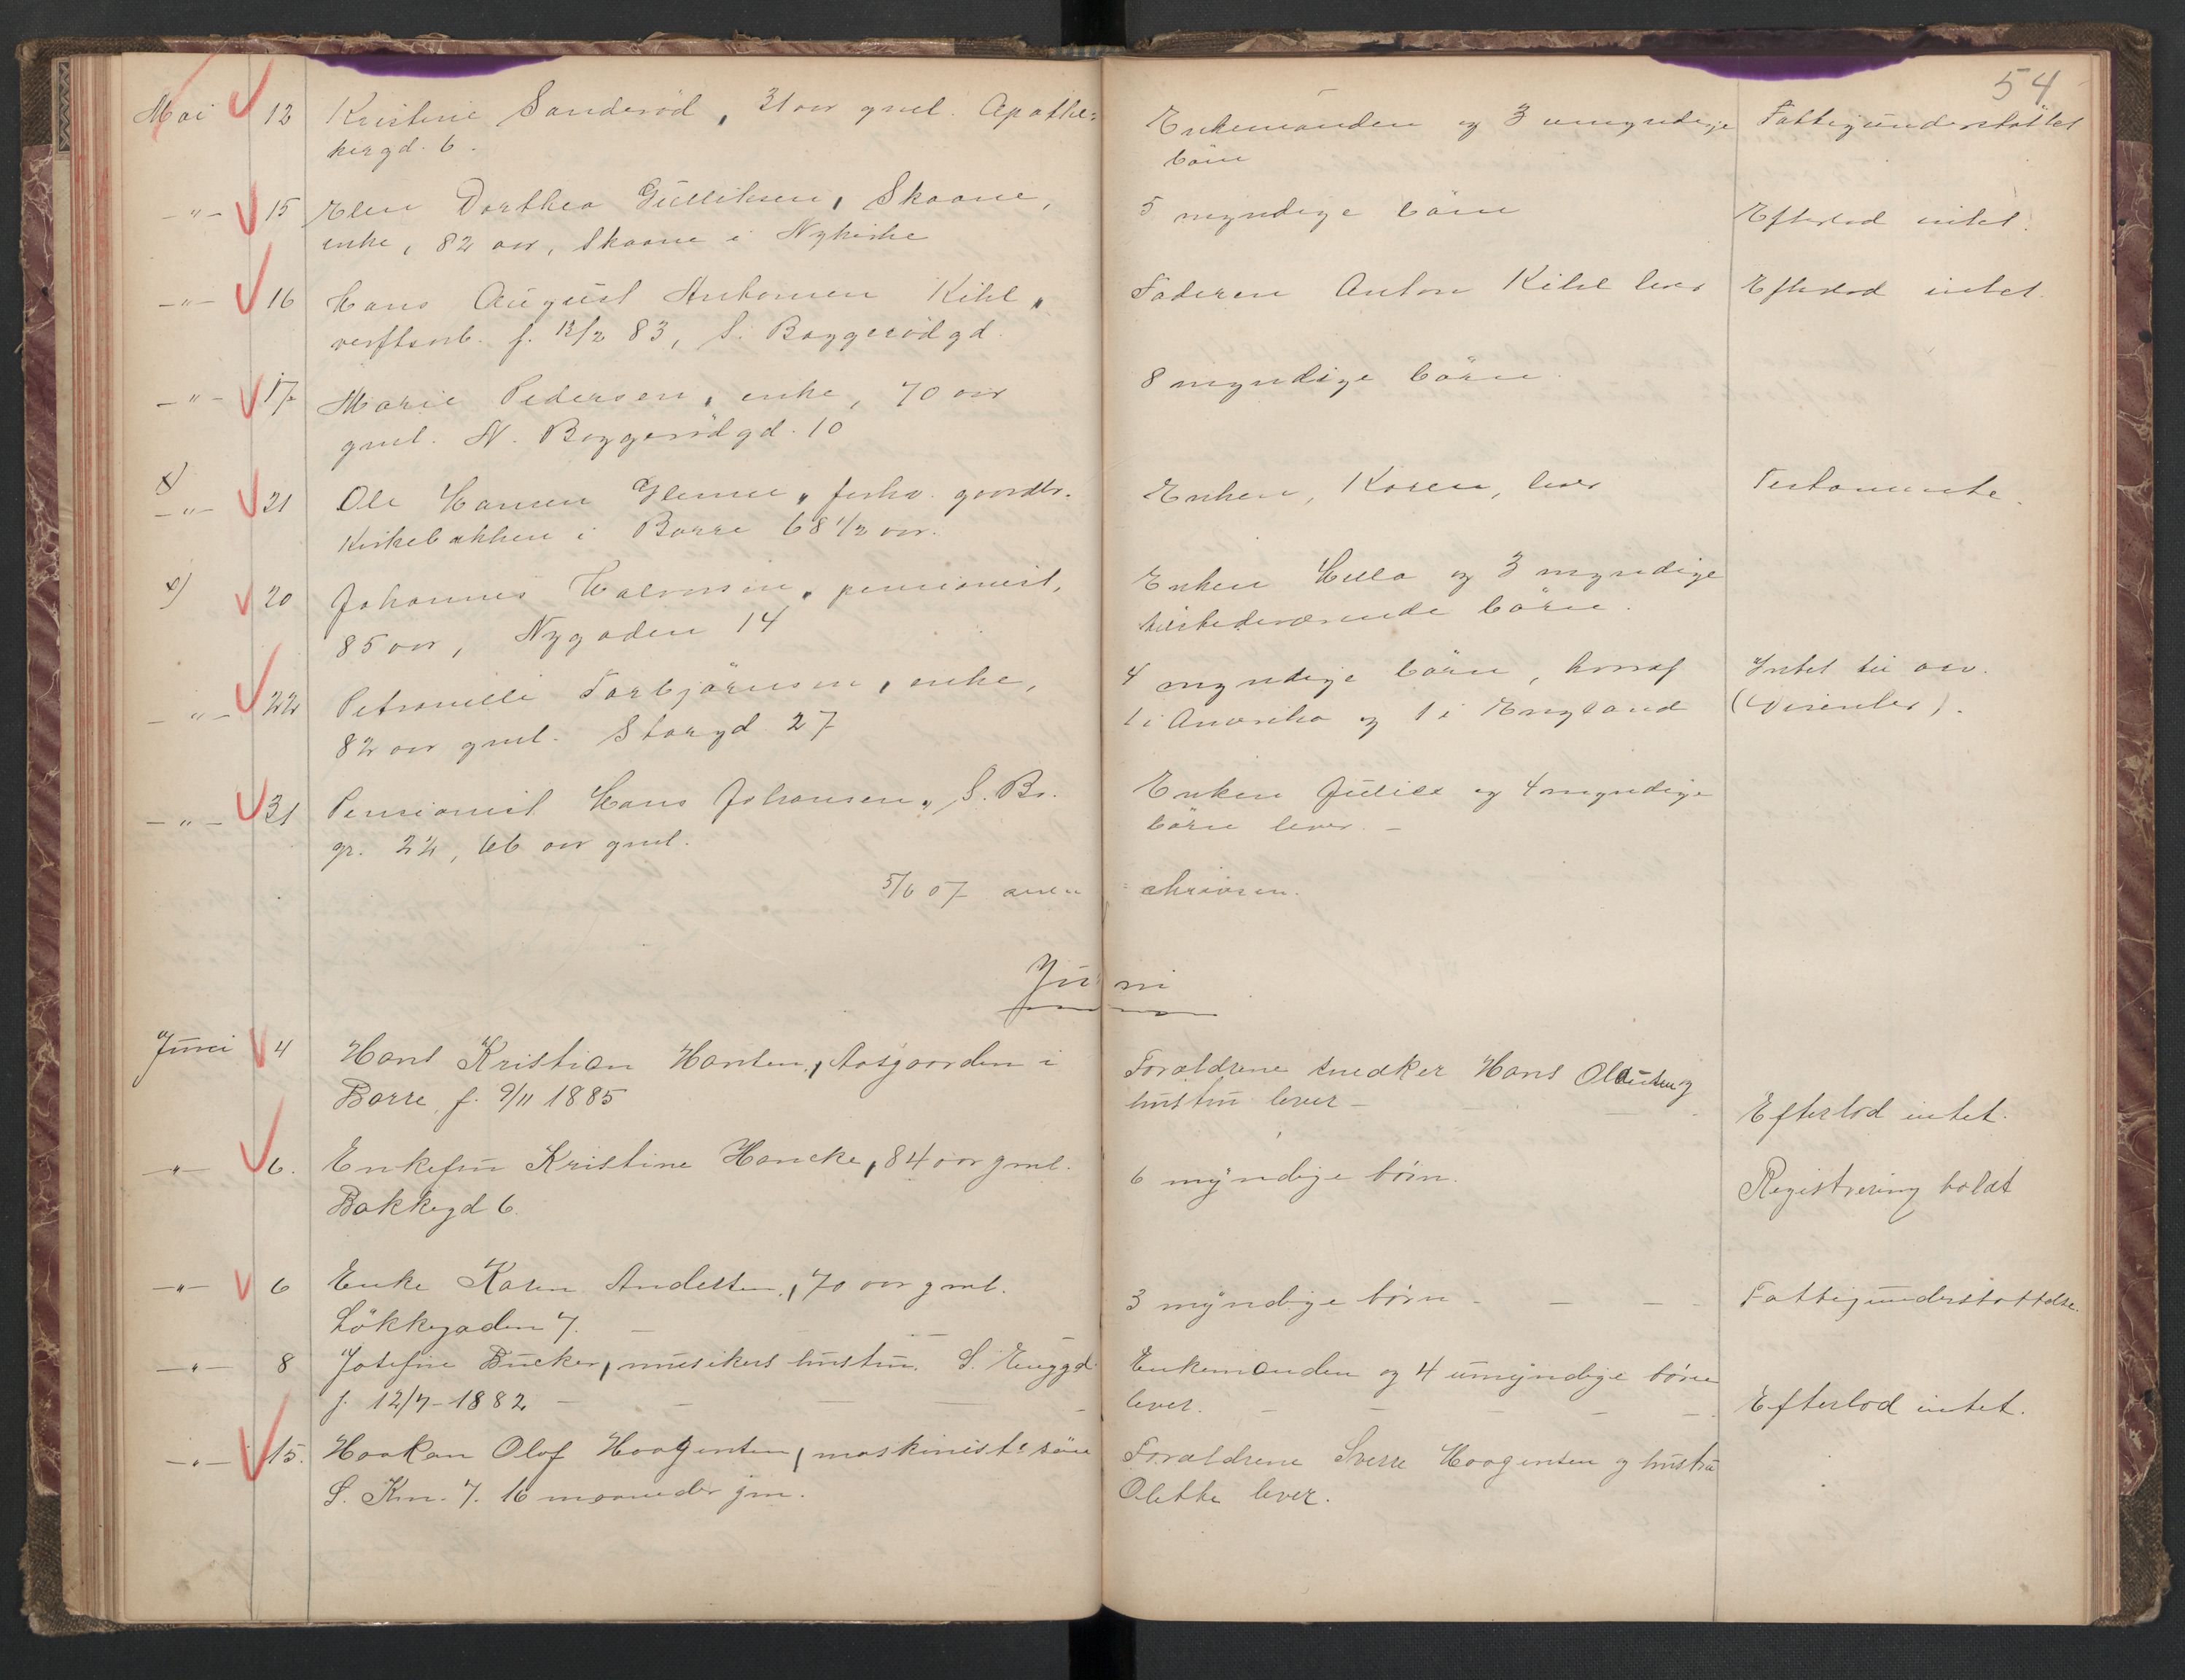 54
Mai 12 Kristine Sanderöd, 31 aar gml. Apothe-
kergd. 6.
Enkemanden og 3 umyndige
börn
Fattigunderstöttet
-"- 15 Elen Dorthea Gulliksen, Skaane,
enke, 82 aar, Skaane i Nykirke
5 myndige börn
Efterlod intet.
-"- 16 Hans August Antonsen Kihl,
verftsarb. f. 12/2 83, S. Baggerödgd.
Faderen Anton Kihl lever
Efterlod intet.
-"- 17 Marie Pedersen, enke, 70 aar
gml. N. Baggerödgd. 10
8 myndige börn.
x) -"- 21 Ole Hansen forhv. gaardbr.
Kirkebakken i Borre 68 1/2 aar.
Enken, Karen, lever
Testamente.
x) 20 Johannes pensionist,
85 aar, Nygaden 14
Enken Hella og 3 myndige
tilstedeværende börn.
-"- 22 Petronille Torbjörnsen, enke,
82 aar gml. Storgd 27
4 myndige börn, hvoraf
1 i Amerika og 1 i England
Intet til arv.
-"- 31 Pensionist Hans Johansen, S. Br.
gr. 22, 66 aar gml.
Enken Julie og 4 myndige
börn lever. -
5/6 07 skrivsen.
Juni
Juni 4 Hans Kristian Hansen, Aasgaarden i
Borre, f. 9/11 1885
Forældrene snedker Hans Olausen og
hustru lever -
Efterlod intet.
-"- 6. Enkefru Kristine Hancke, 84 aar gml.
Bakkegd 6.
6 myndige börn.
Registrering holdt
-"- 6 Enke Karen Andersen, 70 aar gml.
Lökkegaden 7. -
3 myndige börn - - -
Fattigunderstöttelse.
-"- 8 Josefine Bücker, musikers hustru. S. Enggd
f. 12/7-1882 - - - - -
Enkemanden og 4 umyndige börn
lever. - - - -
Efterlod intet.
-"- 15. Haakon Olaf Haagensen, maskinists sön
S. Km. 7. 16 maaneder gm.
Forældrene Sverre Haagensen og hustru
Olette lever.